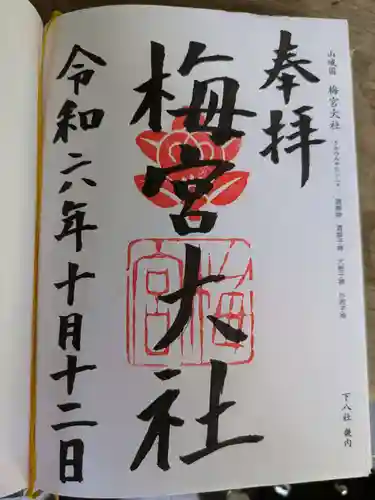 奉拝
山城国 梅宮大社
下八社 畿内
梅宮大社
梅宮
令和六年十月十二日